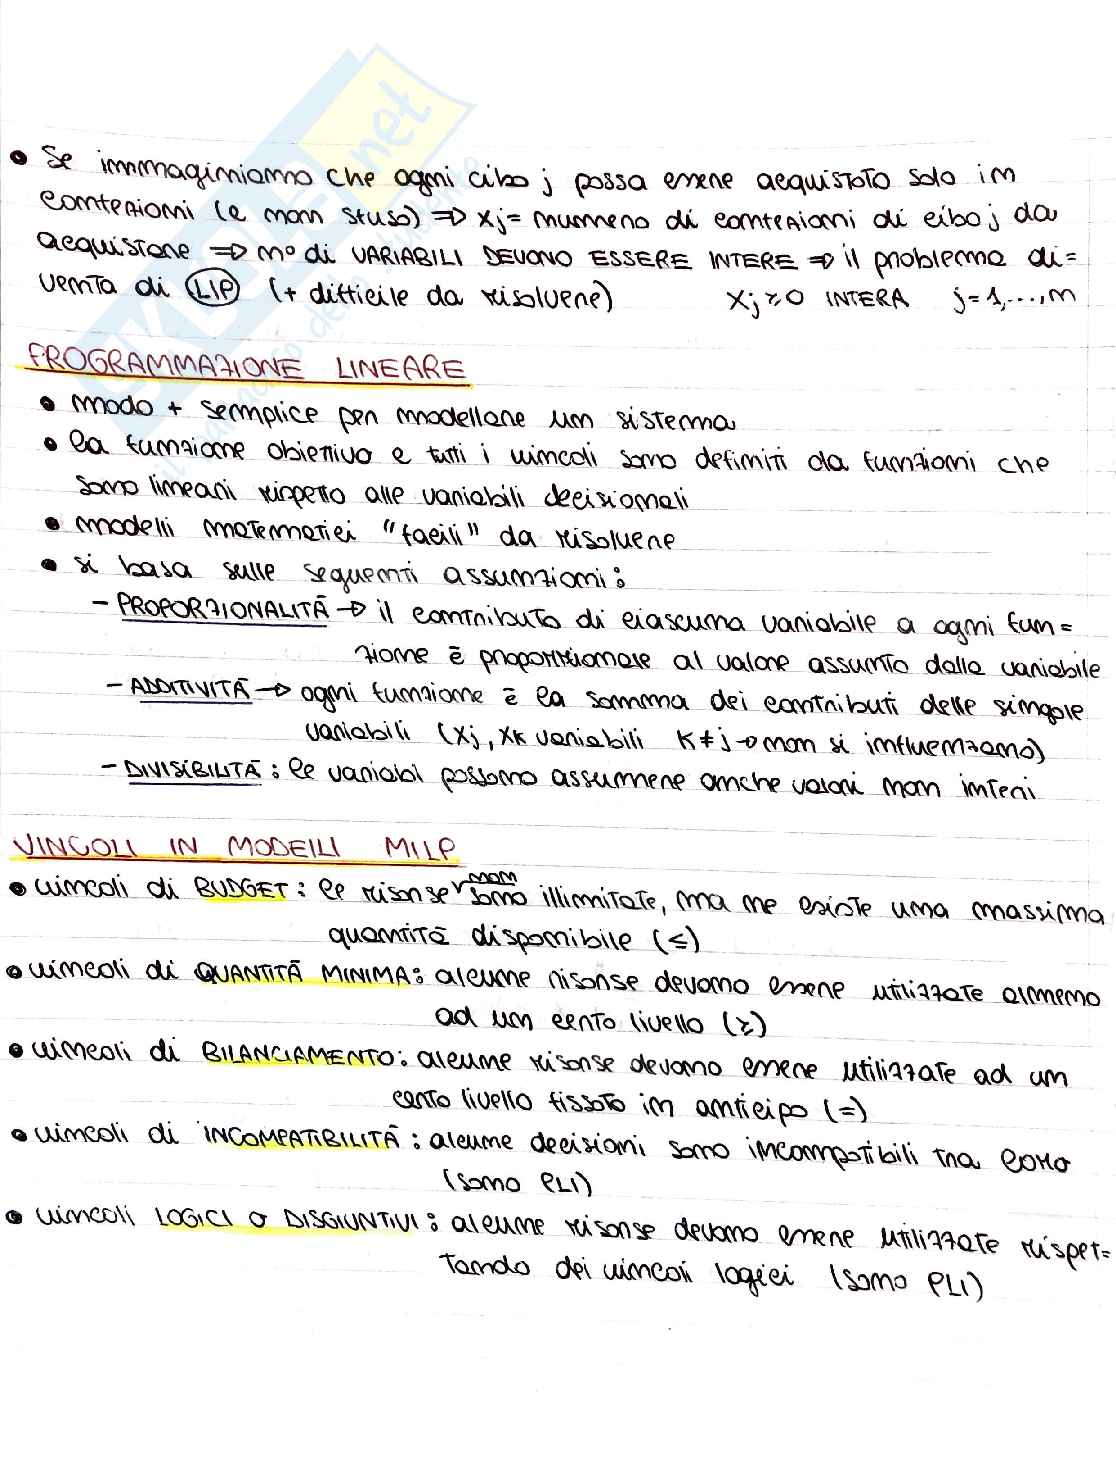 SKUOLA.net
il paradiso dello studente
• Se immaginiamo che ogni cibo j possa essere acquistato solo in
contenitori (e non sfuso) ⇒ xj = numero di contenitori di cibo j da
acquistare ⇒ n° di VARIABILI DEVONO ESSERE INTERE ⇒ il problema di=
venta di LIP (+ difficile da risolvere) xj ≥ 0 INTERA j=1,...,n
PROGRAMMAZIONE LINEARE
• modo + semplice per modellare un sistema
• la funzione obiettivo e tutti i vincoli sono definiti da funzioni che
sono lineari rispetto alle variabili decisionali
• modelli matematici "facili" da risolvere
• si basa sulle seguenti assunzioni:
- PROPORZIONALITÀ → il contributo di ciascuna variabile a ogni fun=
zione è proporzionale al valore assunto dalla variabile
- ADDITIVITÀ → ogni funzione è la somma dei contributi delle singole
variabili (xj, xk variabili k≠j → non si influenzano)
- DIVISIBILITÀ: le variabi possono assumere anche valori non interi
VINCOLI IN MODELLI MILP
• vincoli di BUDGET: le risorse non sono illimitate, ma ne esiste una massima
quantità disponibile (≤)
• vincoli di QUANTITÀ MINIMA: alcune risorse devono essere utilizzate almeno
ad un certo livello (≥)
• vincoli di BILANCIAMENTO: alcune risorse devono essere utilizzate ad un
certo livello fissato in anticipo (=)
• vincoli di INCOMPATIBILITÀ: alcune decisioni sono incompatibili tra loro
(sono PLI)
• vincoli LOGICI o DISGIUNTIVI: alcune risorse devono essere utilizzate rispet=
tando dei vincoli logici (sono PLI)